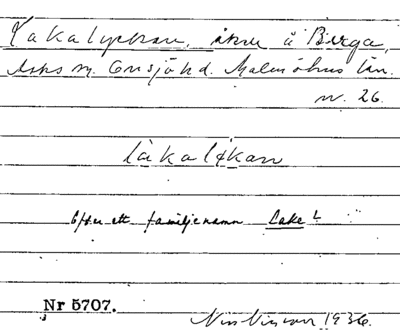 Lakalyckan, åker å Birga,
Asks sn. Onsjö hd. Malmöhus län.
nr. 26.
làkalykan
Efter ett familjenamn Lake?
Nr 5707.
1936